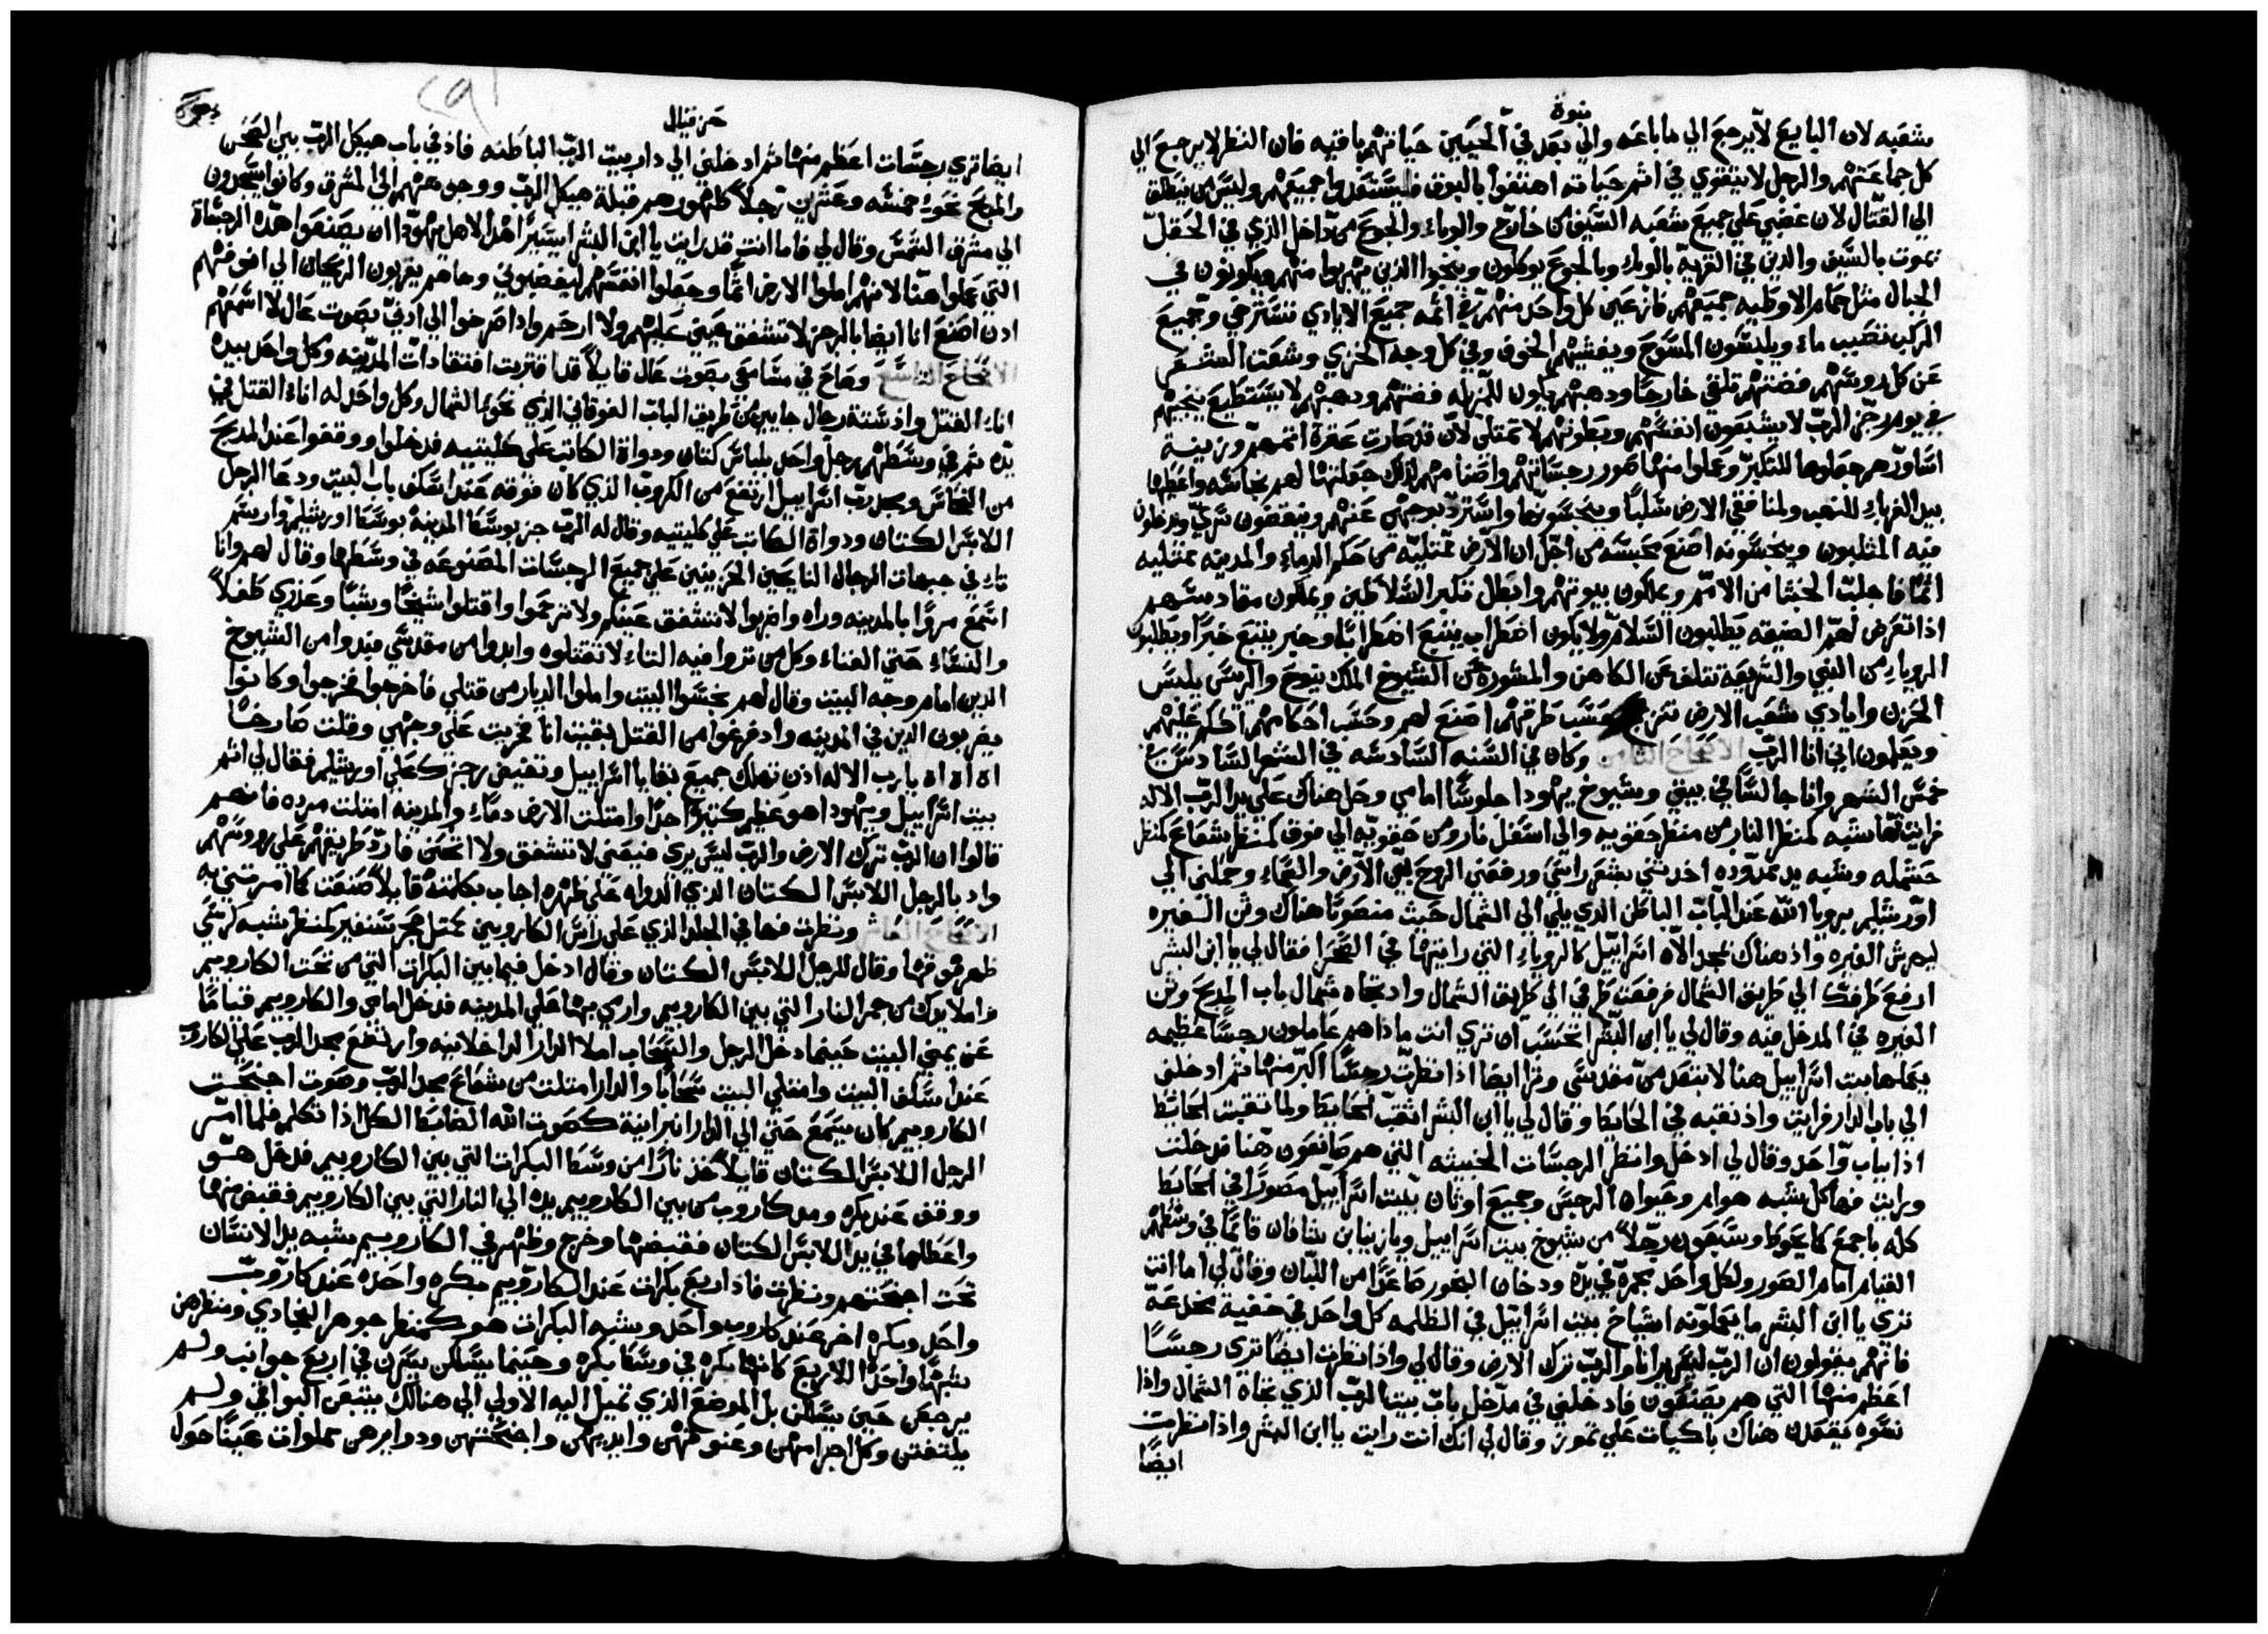 نبوة
شعبه لان البايع لا يرجع الي ما باعه والي بعد في المحيين حياتهم باقيه فان النظر لا يرجع الي
كل جماعتهم والرجل لا يتقوي في اثم حياته اهتفوا بالبوق فليستعدوا جميعهم وليس من ينطلق
الي القتال لان غضبي علي جميع شعبه السيف من خارج والوباء والجوع من داخل الذي في الحقل
يموت بالسيف والذين في القريه بالوباء وبالجوع يوكلون وينجوا الذين يهربوا منهم ويكونون في
الجبال مثل حمام الاوطيه جميعهم فازعين كل واحد منهم في اثمه جميع الايادي تسترخي وجميع
الركب تصبب ماء ويلبسون المسوح ويغشيهم الخوف وفي كل وجه الخزي وشعث الشعر
عن كل روسهم فضتهم تلقي خارجا ودهبهم يكون للمزبله فضتهم ودهبهم لا يستطيع ينجيهم
في يوم رجز الرب لا يشبعون انفسهم وبطونهم لا تمتلي لان قد صارت عثرة اثمهم وزينة
اساورهم جعلوها للتكبر وعملوا منها صور رجساتهم واصنامهم لذلك جعلتها لهم نجاسه واعطيها
بيد الغرباء للنهب ولمنافقي الارض سلبا وينجسونها واسترد بوجهي عنهم وينقضون سري ويدخلون
فيه المثلبون وينجسونه اصنع محبسه من اجل ان الارض ممتليه من حكم الدماء والمدينه ممتليه
اثما فاجلب الخبثا من الامم ويملكون بيوتهم وابطل تكبر السلاطين ويملكون مقادسهم
اذا تعرض لهم الضيقه يطلبون السلام ولا يكون اضطراب يتبع اضطرابا وخبر يتبع خبرا ويطلبون
الروياء من النبي والشريعه تتلف عن الكاهن والمشوره عن الشيوخ الملك ينوح والريس يلبس
الحزن وايادي شعب الارض تنزعج حسب طرقهم اصنع لهم وحسب احكامهم احكم عليهم
ويعلمون اني انا الرب وكان في السنه السادسه في الشهر السادس في
خمس الشهر وانا جالسا في بيتي وشيوخ يهودا جلوسا امامي وحل هناك علي يد الرب الاله
فرايت فها شبه كمنظر النار من منظر حقويه والي اسفل نار ومن حقويه الي فوق كمنظر شعاع كمنظر
حشمله وشبه يد ممدوده اخدتني بشعر راسي ورفعني الروح بين الارض والسماء وحملني الي
اورشليم برويا الله عند الباب الباطن الذي يلي الي الشمال حيث منصوبا هناك وثن الغيره
ليحرش الغيره واذ هناك مجد الاه اسراييل كالروياء التي رايتها في الصحرا فقال لي يا ابن البشر
ارفع طرفك الي طريق الشمال فرفعت طرفي الي طريق الشمال واذ تجاه شمال باب المدبح وثن
الغيره في المدخل فيه وقال لي يا ابن البشر اتحسب ان تري انت ماذا هم عاملون رجسا عظيمه
يعملها بيت اسراييل هنا لابتعد من مقدسي وترا ايضا اذا نظرت رجسا اكبر منها ثم ادخلني
الي باب الدار فرايت واذ نقبه في الحايط وقال لي يا ابن البشر انقب الحايط ولما نقبت الحايط
اذا بباب واحد وقال لي ادخل وانظر الرجسات الخبيثه التي هم صانعون هنا فدخلت
ورايت فها كل شبه هوام وحيوان الرجس وجميع اوثان بيت اسراييل مصورا في الحايط
كله باجمع كما يحوط وسبعون رجلا من شيوخ بيت اسراييل ويازنيا ابن شافان قايما في وسطهم
القيام امام الصور ولكل واحد مجمرة في يده ودخان البخور صاعدا من اللبان وقال لي اما انت
تري يا ابن البشر ما يعملونه اشياخ بيت اسراييل في الظلمه كل واحد في خفية مخدعه
فانهم يقولون ان الرب ليس يرانا والرب ترك الارض وقال لي واذا نظرت ايضا تري رجسا
اعظم منها التي هم يصنعون فادخلني في مدخل باب بيت الرب الذي تجاه الشمال واذا
نسوه يقعدن هناك باكيات علي تموز وقال لي انك انت رايت يا ابن البشر واذا نظرت
ايضا
حزقيال
ايضا تري رجسات اعظم منها ثم ادخلني الي دار بيت الرب الباطنه فاذ في باب هيكل الرب بين الصحن
والمدبح نحو خمسه وعشرين رجلا ظهورهم قبلة هيكل الرب ووجوههم الي المشرق وكانوا يسجدون
الي مشرق الشمس وقال لي فاما انت قد رايت يا ابن البشر ايسير هدا لاهل يهودا ان يصنعوا هذه الرجساة
التي عملوا هنا لانهم املوا الارض اثما وجعلوا انفسهم ليغضبوني وها هم يقربون الريحان الي انوفهم
ادن اصنع انا ايضا بالرجز لا تشفق عيني عليهم ولا ارحم واذا صرخوا الي ادني بصوت عال لا اسمعهم
وصاح في مسامعي بصوت عال قايلا قد اقتربت افتقادات المدينه وكل واحد بيده
اناء القتل واذ ستة رجال جايين من طريق الباب الفوقاني الذي نحو الشمال وكل واحد له اناء القتل في
يده ثم في وسطهم رجل واحد بلباس كتان ودواة الكاتب علي كليتيه فدخلوا ووقفوا عند المدبح
من النحاس ومجد رب اسراييل ارتفع من الكروب الذي كان فوقه عند اسكف باب البيت ودعا الرجل
اللابس الكتان ودواة الكاتب علي كليتيه وقال له الرب جز بوسط المدينة بوسط اورشليم وارسم
تاء في جبهات الرجال النايحين الحزينين علي جميع الرجسات المصنوعه في وسطها وقال لهم وانا
اسمع مروا بالمدينه وراه واضربوا لا تشفق عينكم ولا ترحموا واقتلوا شيخا وشبا وعذري طفلا
والنساء حتي الفناء وكل من تروا فيه التاء لا تقتلوه وابدوا من مقدسي فبدوا من الشيوخ
الذين امام وجه البيت وقال لهم نجسوا البيت واملوا الديار من قتلي فاخرجوا فخرجوا وكانوا
يضربون الذين في المدينه واد فرغوا من القتل بقيت انا فخريت علي وجهي وقلت صارخا
اه اه اه يارب الاله ادن تهلك جميع بقايا اسراييل وتفيض رجزك علي اورشليم فقال لي اثم
بيت اسراييل ويهودا هو عظيم كتيرا جدا وامتلت الارض دماء والمدينه امتلت مرده فانهم
قالوا ان الرب ترك الارض والرب ليس يري فبعيني لا تشفق ولا اتحنن فارد طريقهم علي روسهم
واد بالرجل اللابس الكتان الذي الدواه علي ظهره اجاب بكلمة قايلا صنعت كما امرتني به
ونظرت فها في الجلد الذي علي راس الكاروبين كمثل حجر سنفير كمنظر شبه كرسي
ظهر فوقها وقال للرجل اللابس الكتان وقال ادخل فيما بين البكرات التي من تحت الكاروبيم
واملا يدك من جمر النار التي بين الكاروبيم واري بها علي المدينه فدخل امامي والكاروبيم قياما
عن يمين البيت حينما دخل الرجل والسحاب املا الدار الداخلانيه وارتفع مجد الرب علي الكاروب
عند اسكف البيت وامتلي البيت سحابا والدار امتلت من شعاع مجد الرب وصوت اجنحت
الكاروبيم كان يسمع حتي الي الدار البرانية كصوت الله الضابط الكل اذا تكلم فلما امر
الرجل اللابس الكتان قايلا خذ نارا من وسط البكرات التي بين الكاروبيم فدخل هو
ووقف عند بكره ومد كاروب من بين الكاروبيم يده الي النار التي بين الكاروبيم فقبض منها
واعطاها في يد اللابس الكتان فقبضها وخرج وظهر في الكاروبيم شبه يد الانسان
تحت اجنحتهم ونظرت فاذ اربع بكرات عند الكاروبيم بكره واحده عند كاروب
واحد وبكره اخر عند كاروب واحد وشبه البكرات هو كمنظر جوهر النجادي ومنظرهن
شبها واحدا للاربع كانها بكره في وسط بكره وحينما يسلكن يسرن في اربع جوانب ولم
يرجعن حين يسلكن بل الموضع الذي تميل اليه الاولي الي هنالك يتبعن البواقي ولم
يلتفتن وكل اجرامهن وعنوقهن وايديهن واجنحتهن ودوايرهن مملوات عيينا حول